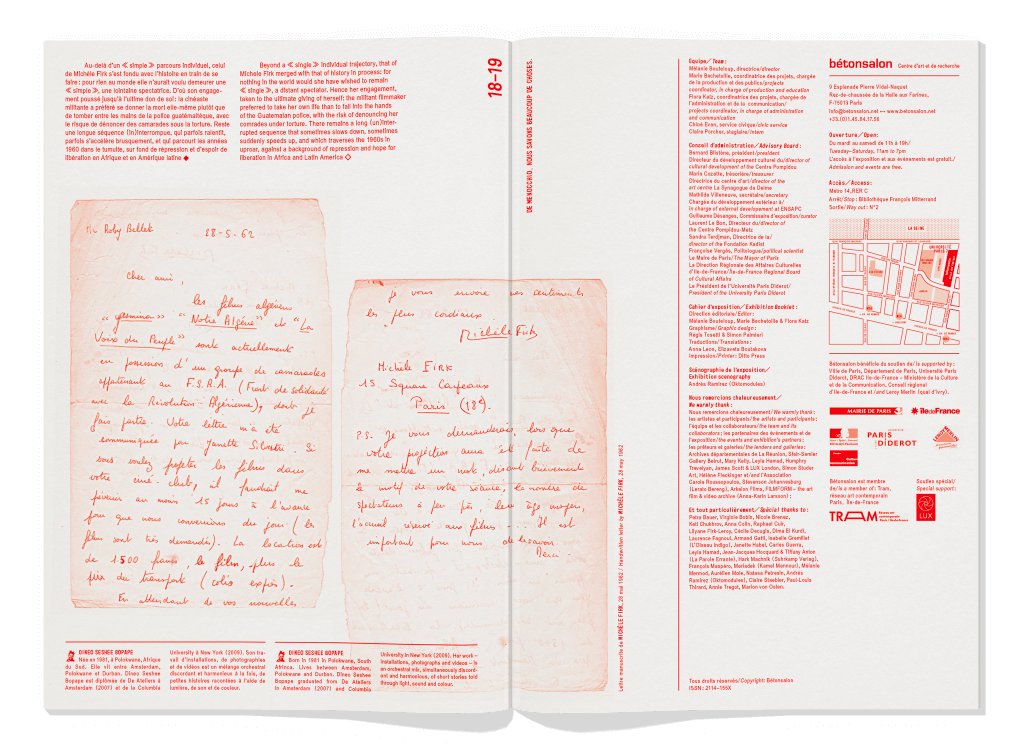 Au-delà d'un ≪ simple ≫ parcours individuel, celui
de Michèle Firk s'est fondu avec l'histoire en train de se
faire : pour rien au monde elle n'aurait voulu demeurer une
≪ simple ≫, une lointaine spectatrice. D'où son engage-
ment poussé jusqu'à l'ultime don de soi : la cinéaste
militante a préféré se donner la mort elle-même plutôt que
de tomber entre les mains de la police guatémaltèque, avec
le risque de dénoncer des camarades sous la torture. Reste
une longue séquence (in)interrompue, qui parfois ralentit,
parfois s'accélère brusquement, et qui parcourt les années
1960 dans le tumulte, sur fond de répression et d'espoir de
libération en Afrique et en Amérique latine ◆
Beyond a ≪ single ≫ individual trajectory, that of
Michèle Firk merged with that of history in process: for
nothing in the world would she have wished to remain
≪ single ≫, a distant spectator. Hence her engagement,
taken to the ultimate giving of herself: the militant filmmaker
preferred to take her own life than to fall into the hands
of the Guatemalan police, with the risk of denouncing her
comrades under torture. There remains a long (un)inter-
rupted sequence that sometimes slows down, sometimes
suddenly speeds up, and which traverses the 1960s in
uproar, against a background of repression and hope for
liberation in Africa and Latin America ◇
18–19
DE MENOCCHIO, NOUS SAVONS BEAUCOUP DE CHOSES.
Mr Roby Billet
28-5-62
Cher ami,
les films algériens
"Yasmina" "Notre Algérie" et "La
Voix du Peuple" sont actuellement
en possession d'un groupe de camarades
appartenant au F.S.R.A. (Front de solidarité
avec la Révolution Algérienne), dont je
fais partie. Votre lettre m'a été
communiquée par Janette
vous voulez projeter les films dans
votre ciné-club, il faudrait me
prévenir au moins 15 jours à l'avance
pour que nous convenions du jour (les
films sont très demandés). La location est
de 1500 francs, le film, plus le
prix du transport (colis exprès).
En attendant de vos nouvelles
je vous envoie mes sentiments
les plus cordiaux
Michèle Firk
Michèle FIRK
15 Square Carpeaux
Paris (18e)
P.S. Je vous demanderai, lors que
votre projection aura été faite de
me mettre un mot, disant brièvement
le motif de votre séance, le nombre de
spectateurs à peu près, leur âge moyen,
l'accueil réservé aux films ---. Il est
important pour nous de le savoir.
Merci -
Lettre manuscrite de MICHÈLE FIRK, 28 mai 1962 / Handwritten letter by MICHÈLE FIRK, 28 may 1962
DINEO SESHEE BOPAPE
Née en 1981, à Polokwane, Afrique
du Sud. Elle vit entre Amsterdam,
Polokwane et Durban. Dineo Seshee
Bopape est diplômée de De Ateliers à
Amsterdam (2007) et de la Columbia
University à New York (2009). Son tra-
vail d'installations, de photographies
et de vidéos est un mélange orchestral
discordant et harmonieux à la fois, de
petites histoires racontées à l'aide de
lumière, de son et de couleur.
DINEO SESHEE BOPAPE
Born in 1981 in Polokwane, South
Africa. Lives between Amsterdam,
Polokwane and Durban. Dineo Seshee
Bopape graduated from De Ateliers
in Amsterdam (2007) and Columbia
University in New York (2009). Her work –
installations, photographs and videos – is
an orchestral mix, simultaneously discord-
ant and harmonious, of short stories told
through light, sound and colour.
Equipe/Team:
Mélanie Bouteloup, directrice/director
Marie Bechetoille, coordinatrice des projets, chargée
de la production et des publics/projects
coordinator, in charge of production and education
Flora Katz, coordinatrice des projets, chargée de
l'administration et de la communication/
projects coordinator, in charge of administration
and communication
Chloé Even, service civique/civic service
Claire Porcher, stagiaire/intern
Conseil d'administration/Advisory Board:
Bernard Blistène, président/president
Directeur du développement culturel du/director of
cultural development of the Centre Pompidou
Marie Cozette, trésorière/treasurer
Directrice du centre d'art/director of the
art centre La Synagogue de Delme
Mathilde Villeneuve, secrétaire/secretary
Chargée du développement extérieur à/
in charge of external development at ENSAPC
Guillaume Désanges, Commissaire d'exposition/curator
Laurent Le Bon, Directeur du/director of
the Centre Pompidou-Metz
Sandra Terdjman, Directrice de la/
director of the Fondation Kadist
Françoise Vergès, Politologue/political scientist
Le Maire de Paris/The Mayor of Paris
La Direction Régionale des Affaires Culturelles
d'Ile-de-France/Ile-de-France Regional Board
of Cultural Affairs
Le Président de l'Université Paris Diderot/
President of the University Paris Diderot
Cahier d'exposition/Exhibition Booklet:
Direction éditoriale/Editor:
Mélanie Bouteloup, Marie Bechetoille & Flora Katz
Graphisme/Graphic design:
Régis Tosetti & Simon Palmieri
Traductions/Translations:
Anna Leon, Elizaveta Boutakova
Impression/Printer: Ditto Press
Scénographie de l'exposition/
Exhibition scenography
Andrés Ramirez (Oktomodules)
Nous remercions chaleureusement/
We warmly thank:
Nous remercions chaleureusement/We warmly thank:
les artistes et participants/the artists and participants;
l'équipe et les collaborateurs/the team and its
collaborators; les partenaires des événements et de
l'exposition/the events and exhibition's partners;
les prêteurs et galeries/the lenders and galleries:
Archives départementales de La Réunion, Stair-Semler
Gallery Beirut, Mary Kelly, Leyla Hamed, Humphry
Trevelyan, James Scott & LUX London, Simon Studer
Art, Hélène Fleckinger et/and l'Association
Carole Roussopoulos, Stevenson Johannesburg
(Lerato Bereng), Arkelon Films, FILMFORM – the art
film & video archive (Anna-Karin Larsson);
Et tout particulièrement/Special thanks to:
Petra Bauer, Virginie Bobin, Nicole Brenez,
Kell Chukhrov, Anna Colin, Raphael Cuir,
Liliane Firk-Leroy, Cécile Decugis, Dima El Kurdi,
Laurence Pagnout, Armand Gatti, Isabelle Gremillet
(L'Oiseau Indigo), Janette Habel, Carles Guerra,
Leyla Hamed, Jean-Jacques Hocquard & Tiffany Anton
(La Parole Errante), Hark Machnik (Suhrkamp Verlag),
François Maspéro, Marladek (Kamel Mennour), Mélanie
Mermod, Aurélien Mole, Natasa Petresin, Andrés
Ramirez (Oktomodules), Claire Staebler, Paul-Louis
Thirard, Annie Tregot, Marion von Osten.
Tous droits réservés/Copyright: Bétonsalon
ISSN : 2114-155X
bétonsalon Centre d'art et de recherche
9 Esplanade Pierre Vidal-Naquet
Rez-de-chaussée de la Halle aux Farines,
F-75013 Paris
info@betonsalon.net — www.betonsalon.net
+33.(0)1.45.84.17.56
Ouverture/Open:
Du mardi au samedi de 11h à 19h/
Tuesday–Saturday, 11am to 7pm
L'accès à l'exposition et aux événements est gratuit./
Admission and events are free.
Accès/Access:
Métro 14, RER C
Arrêt/Stop: Bibliothèque François Mitterrand
Sortie/Way out: N°2
LA SEINE
UNIVERSITÉ
PARIS 7
Bétonsalon bénéficie du soutien de/is supported by:
Ville de Paris, Département de Paris, Université Paris
Diderot, DRAC Ile-de-France – Ministère de la Culture
et de la Communication, Conseil régional
d'Ile-de-France et/and Leroy Merlin (quai d'Ivry).
MAIRIE DE PARIS
îledeFrance
PARIS
DIDEROT
Bétonsalon est membre
de/is a member of: Tram,
réseau art contemporain
Paris, Ile-de-France
TRAM
Soutien spécial/
Special support:
LUX